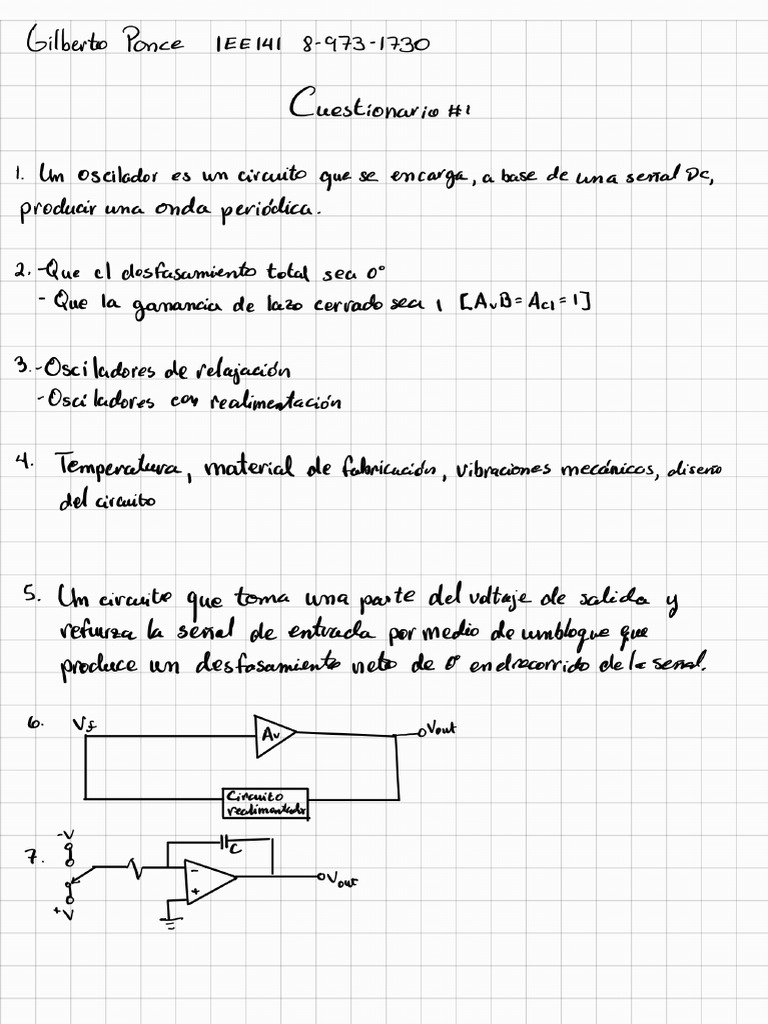 Gilberto Ponce 1EE141 8-973-1730
Cuestionario #1
1. Un oscilador es un circuito que se encarga, a base de una señal DC,
producir una onda periódica.
2. -Que el desfasamiento total sea 0°
- Que la ganancia de lazo cerrado sea 1 [AvB = Acl = 1]
3. -Osciladores de relajación
-Osciladores con realimentación
4. Temperatura, material de fabricación, vibraciones mecánicos, diseño
del circuito
5. Un circuito que toma una parte del voltaje de salida y
refuerza la señal de entrada por medio de un bloque que
produce un desfasamiento neto de 0° en el recorrido de la señal.
6. Vf Av Vout
Circuito
realimentador
7. -V
C
- + Vout
+V